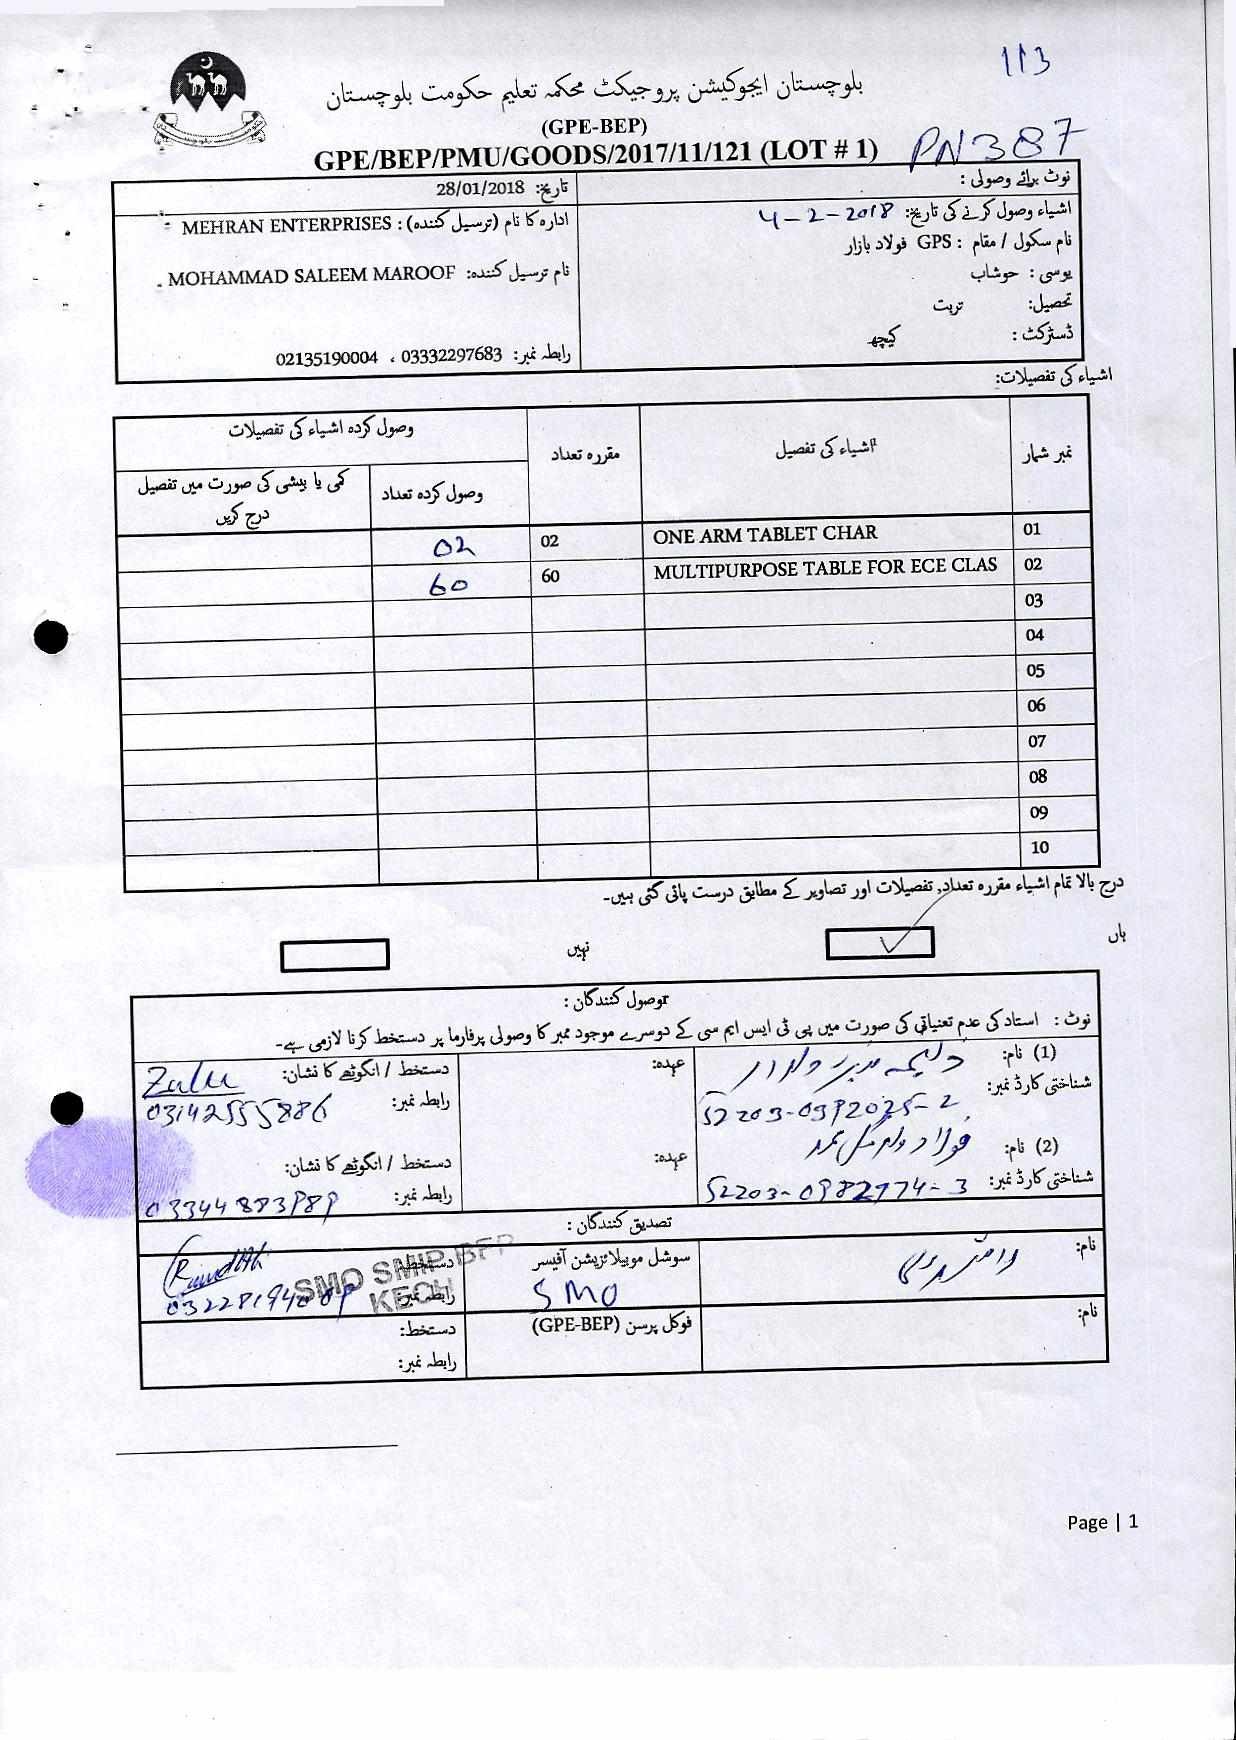 113
بلوچستان ایجوکیشن پروجیکٹ محکمہ تعلیم حکومت بلوچستان
(GPE-BEP)
GPE/BEP/PMU/GOODS/2017/11/121 (LOT # 1)
PN387
نوٹ برائے وصولی :
تاریخ: 28/01/2018
اشیاء وصول کرنے کی تاریخ: 4-2-2018
ادارہ کا نام (ترسیل کنندہ) : MEHRAN ENTERPRISES
نام سکول / مقام : GPS فولاد بازار
نام ترسیل کنندہ: MOHAMMAD SALEEM MAROOF
یوسی : حوشاب
تحصیل: تربت
ڈسٹرکٹ : کیچ
رابطہ نمبر: 03332297683 ، 02135190004
اشیاء کی تفصیلات:
نمبر شمار اشیاء کی تفصیل مقررہ تعداد وصول کردہ اشیاء کی تفصیلات
وصول کردہ تعداد کمی یا بیشی کی صورت میں تفصیل درج کریں
01 ONE ARM TABLET CHAR 02 02
02 MULTIPURPOSE TABLE FOR ECE CLAS 60 60
03
04
05
06
07
08
09
10
درج بالا تمام اشیاء مقررہ تعداد, تفصیلات اور تصاویر کے مطابق درست پائی گئی ہیں۔
ہاں ✓ نہیں
وصول کنندگان :
نوٹ : استاد کی عدم تعنیاتی کی صورت میں پی ٹی ایس ایم سی کے دوسرے موجود ممبر کا وصولی پرفارما پر دستخط کرنا لازمی ہے۔
(1) نام: عہدہ: دستخط / انگوٹھے کا نشان:
شناختی کارڈ نمبر: رابطہ نمبر: 03142555886
(2) نام: عہدہ: دستخط / انگوٹھے کا نشان:
شناختی کارڈ نمبر: رابطہ نمبر:
تصدیق کنندگان :
نام: سوشل موبیلائزیشن آفیسر دستخط:
SMO رابطہ نمبر:
SMO SMIP.BEP
KECH
نام: فوکل پرسن (GPE-BEP) دستخط:
رابطہ نمبر:
Page | 1